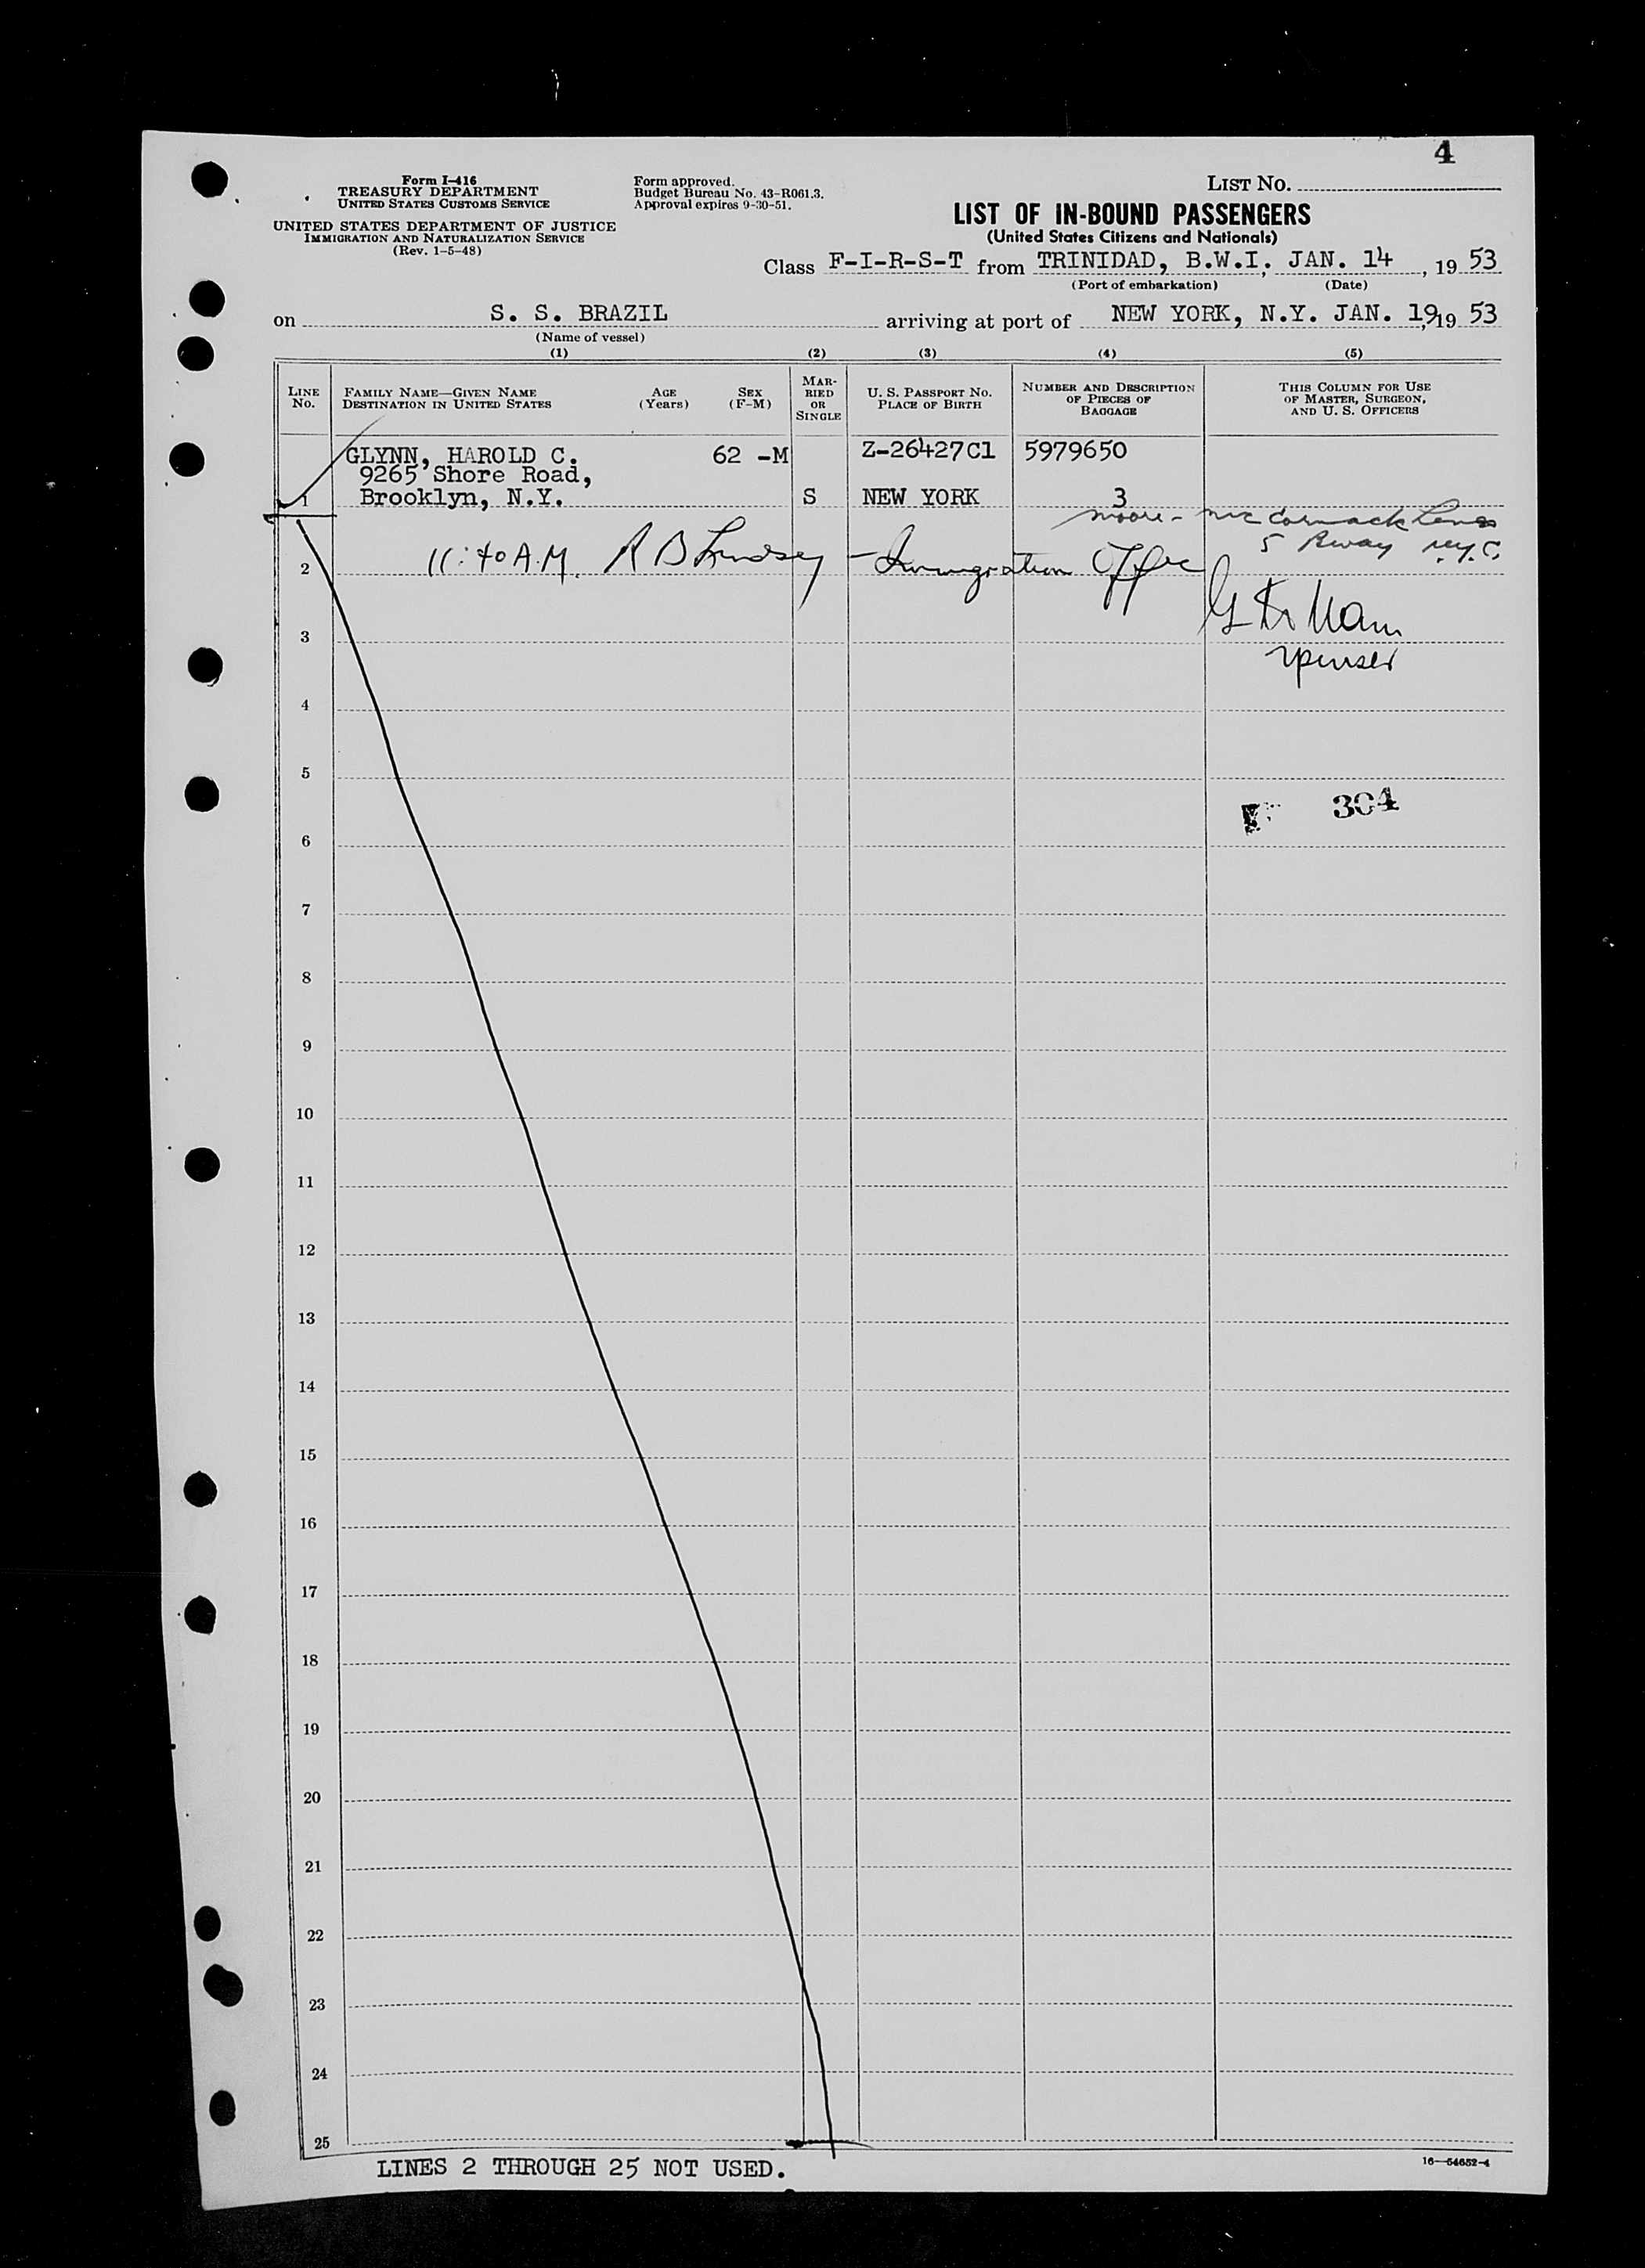 4
Form I-416
TREASURY DEPARTMENT
UNITED STATES CUSTOMS SERVICE
UNITED STATES DEPARTMENT OF JUSTICE
IMMIGRATION AND NATURALIZATION SERVICE
(Rev. 1-5-48)
Form approved.
Budget Bureau No. 43-R061.3.
Approval expires 9-30-51.
LIST NO.
LIST OF IN-BOUND PASSENGERS
(United States Citizens and Nationals)
Class F-I-R-S-T from TRINIDAD, B.W.I. JAN. 14, 19 53
(Port of embarkation) (Date)
on S. S. BRAZIL arriving at port of NEW YORK, N.Y. JAN. 19, 19 53
(Name of vessel)
(1) (2) (3) (4) (5)
LINE NO.
FAMILY NAME—GIVEN NAME
DESTINATION IN UNITED STATES
AGE (Years)
SEX (F-M)
MARRIED OR SINGLE
U. S. PASSPORT NO.
PLACE OF BIRTH
NUMBER AND DESCRIPTION
OF PIECES OF
BAGGAGE
THIS COLUMN FOR USE
OF MASTER, SURGEON,
AND U. S. OFFICERS
GLYNN, HAROLD C. 62 -M Z-26427C1 5979650
9265 Shore Road,
1 Brooklyn, N.Y. S NEW YORK 3
Moore-McCormack Lines
5 Bway N.Y.C.
2 11:40 A.M. R B Lindsey - Immigration Offic
3
purser
4
5
304
6
7
8
9
10
11
12
13
14
15
16
17
18
19
20
21
22
23
24
25
LINES 2 THROUGH 25 NOT USED.
16—54652-4